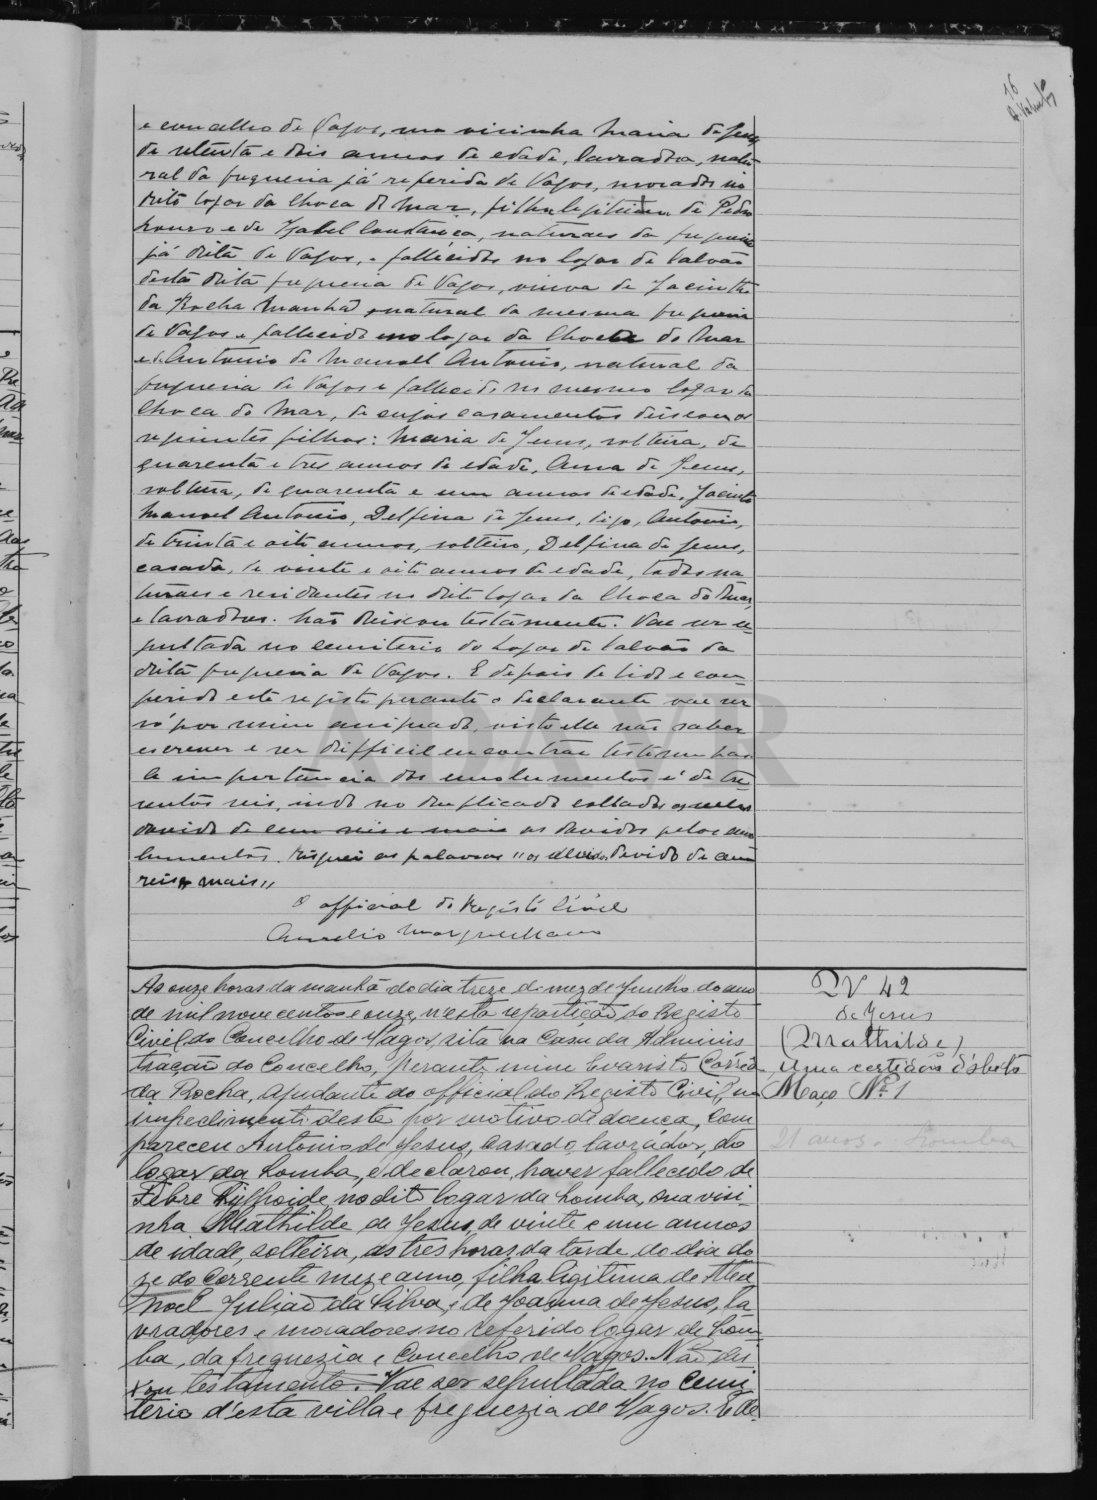 16
e concelho de Vagos, sua visinha Maria de Jesus
de setenta e dois annos de edade, lavradora, natu
ral da freguesia já referida de Vagos, morador no
dito logar da Choca do Mar, filha legitima de Pedro
Louro e de Izabel Constancia, naturaes da freguesia
já dita de Vagos, e fallecidos no logar de Calvão
desta dita freguesia de Vagos, viuva de Jacintho
da Rocha Manhã natural da mesma freguesia
de Vagos e fallecido no logar da Choca do Mar
e de Antonio de Manoel Antonio, natural da
freguesia de Vagos e fallecido no mesmo logar da
Choca do Mar, de cujos casamentos deixou os
seguintes filhos: Maria de Jesus, solteira, de
quarenta e tres annos de edade, Anna de Jesus,
solteira, de quarenta e um annos de edade, Jacinto
Manoel Antonio, Delfina de Jesus, digo, Antonio,
de trinta e oito annos, solteiro, Delfina de Jesus,
casada, de vinte e oito annos de edade, todos na
turaes e residentes no dito logar da Choca do Mar,
e lavradores. Não deixou testamento. Vae ser se
pultada no cemiterio do logar de Calvão da
dita freguesia de Vagos. E depois de lido e con
ferido este registo perante o declarante vae ser
só por mim assignado, visto elle não saber
escrever e ser difficil encontrar testemunhas.
A importancia dos emolumentos é de tre
sentos reis, indo no duplicado collados os sellos
devido de cem reis e mais os devidos pelos emo
lumentos. Risquei as palavras "os devido de cem
reis e mais"
O official do Registo Civil
Aurelio Marques Mano
As onze horas da manhã do dia treze do mez de Junho do anno
de mil nove centos e onze, n'esta repartição do Registo
Civil do Concelho de Vagos, sita na Casa da Adminis
tração do Concelho, perante mim Evaristo Corrêa
da Rocha, ajudante do official do Registo Civil, no
impedimento deste por motivo de doença, com
pareceu Antonio de Jesus, casado, lavrador, do
logar da Lomba, e declarou haver fallecido de
Febre Typhoide, no dito logar da Lomba, sua visi
nha Mathilde de Jesus, de vinte e um annos
de idade, solteira, as tres horas da tarde do dia do
ze do corrente mez e anno, filha legitima de Ma
noel Julião da Silva, e de Joanna de Jesus, la
vradores e moradores no referido logar de Lom
ba, da freguezia e Concelho de Vagos. Não dei
xou testamento. Vae ser sepultada no cemi
terio d'esta villa e freguezia de Vagos. E de
DV 42
de Jesus
(Mathilde)
Uma certidão d'obito
Maço Nº 1
21 annos. Lomba
ADAVR